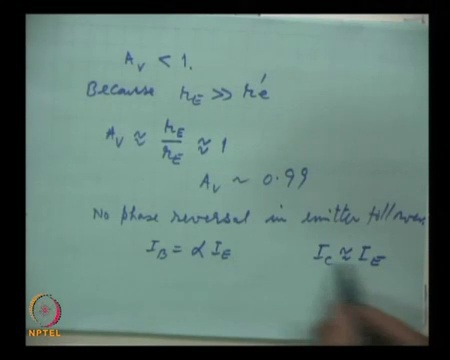 A_V < 1.
Because r_E >> r'e
A_V ≈ r_E / r_E ≈ 1
A_V ~ 0.99
No phase reversal in emitter follower
I_B = α I_E    I_C ≈ I_E
NPTEL